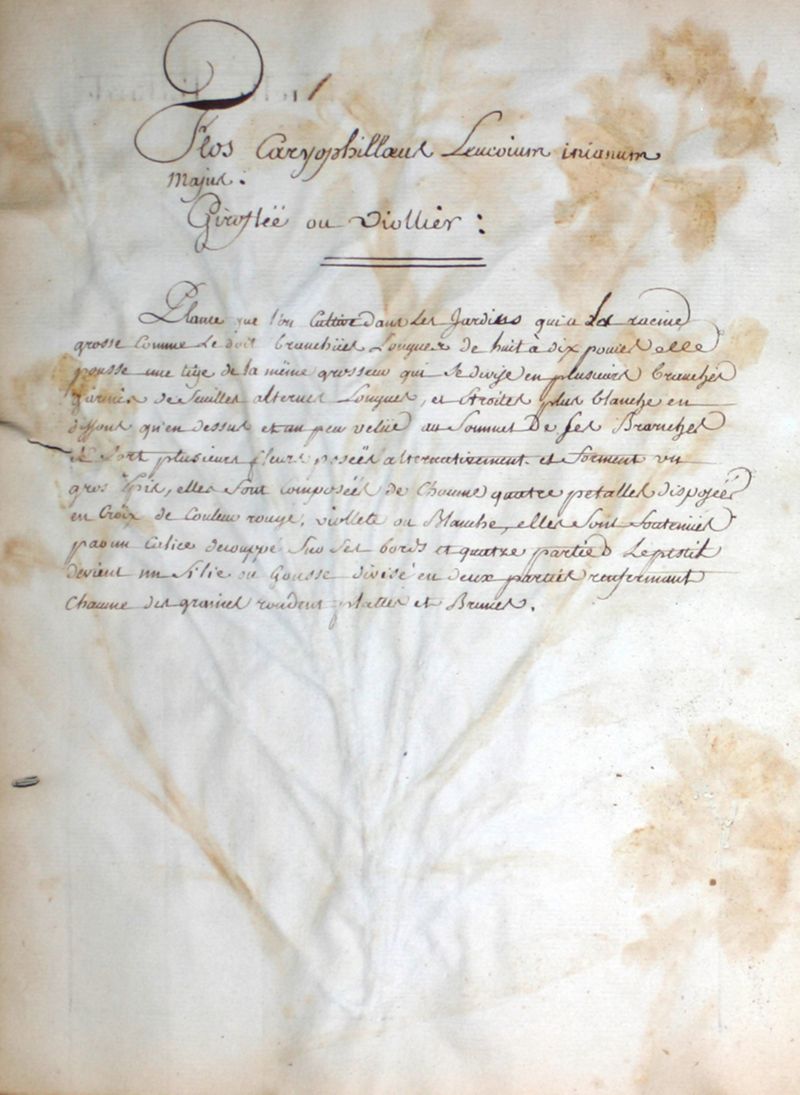 Flos Caryophillæus Leucoium incanum
Majus.
Giroflëë ou Viollier :
Plante que l'on Cultive dans Les Jardins qui a La racine
grosse Comme Le doit branchües Longues de huit à dix pouces elle
pousse une tige de la même grosseur qui Se divise en plusieurs branches
garnies de feuilles alternes Longues, et Etroites plus blanche en
dessous qu'en dessus et un peu velüe au Sommet De Ses Branches
il Sort plusieurs fleurs poseés alternativement et forment un
gros Epis, elles Sont Composeés de Chaune quatre petalles disposeés
en Croix de Couleur rouge, viollete ou Blanche, elles Sont Soutenües
par un Calice decouppé Sur Ses bords et quatre parties Le pistil
devient un Silie ou Gousse divisé en deux parties renfermant
Chaune des graines rondent plattes et Brunes.